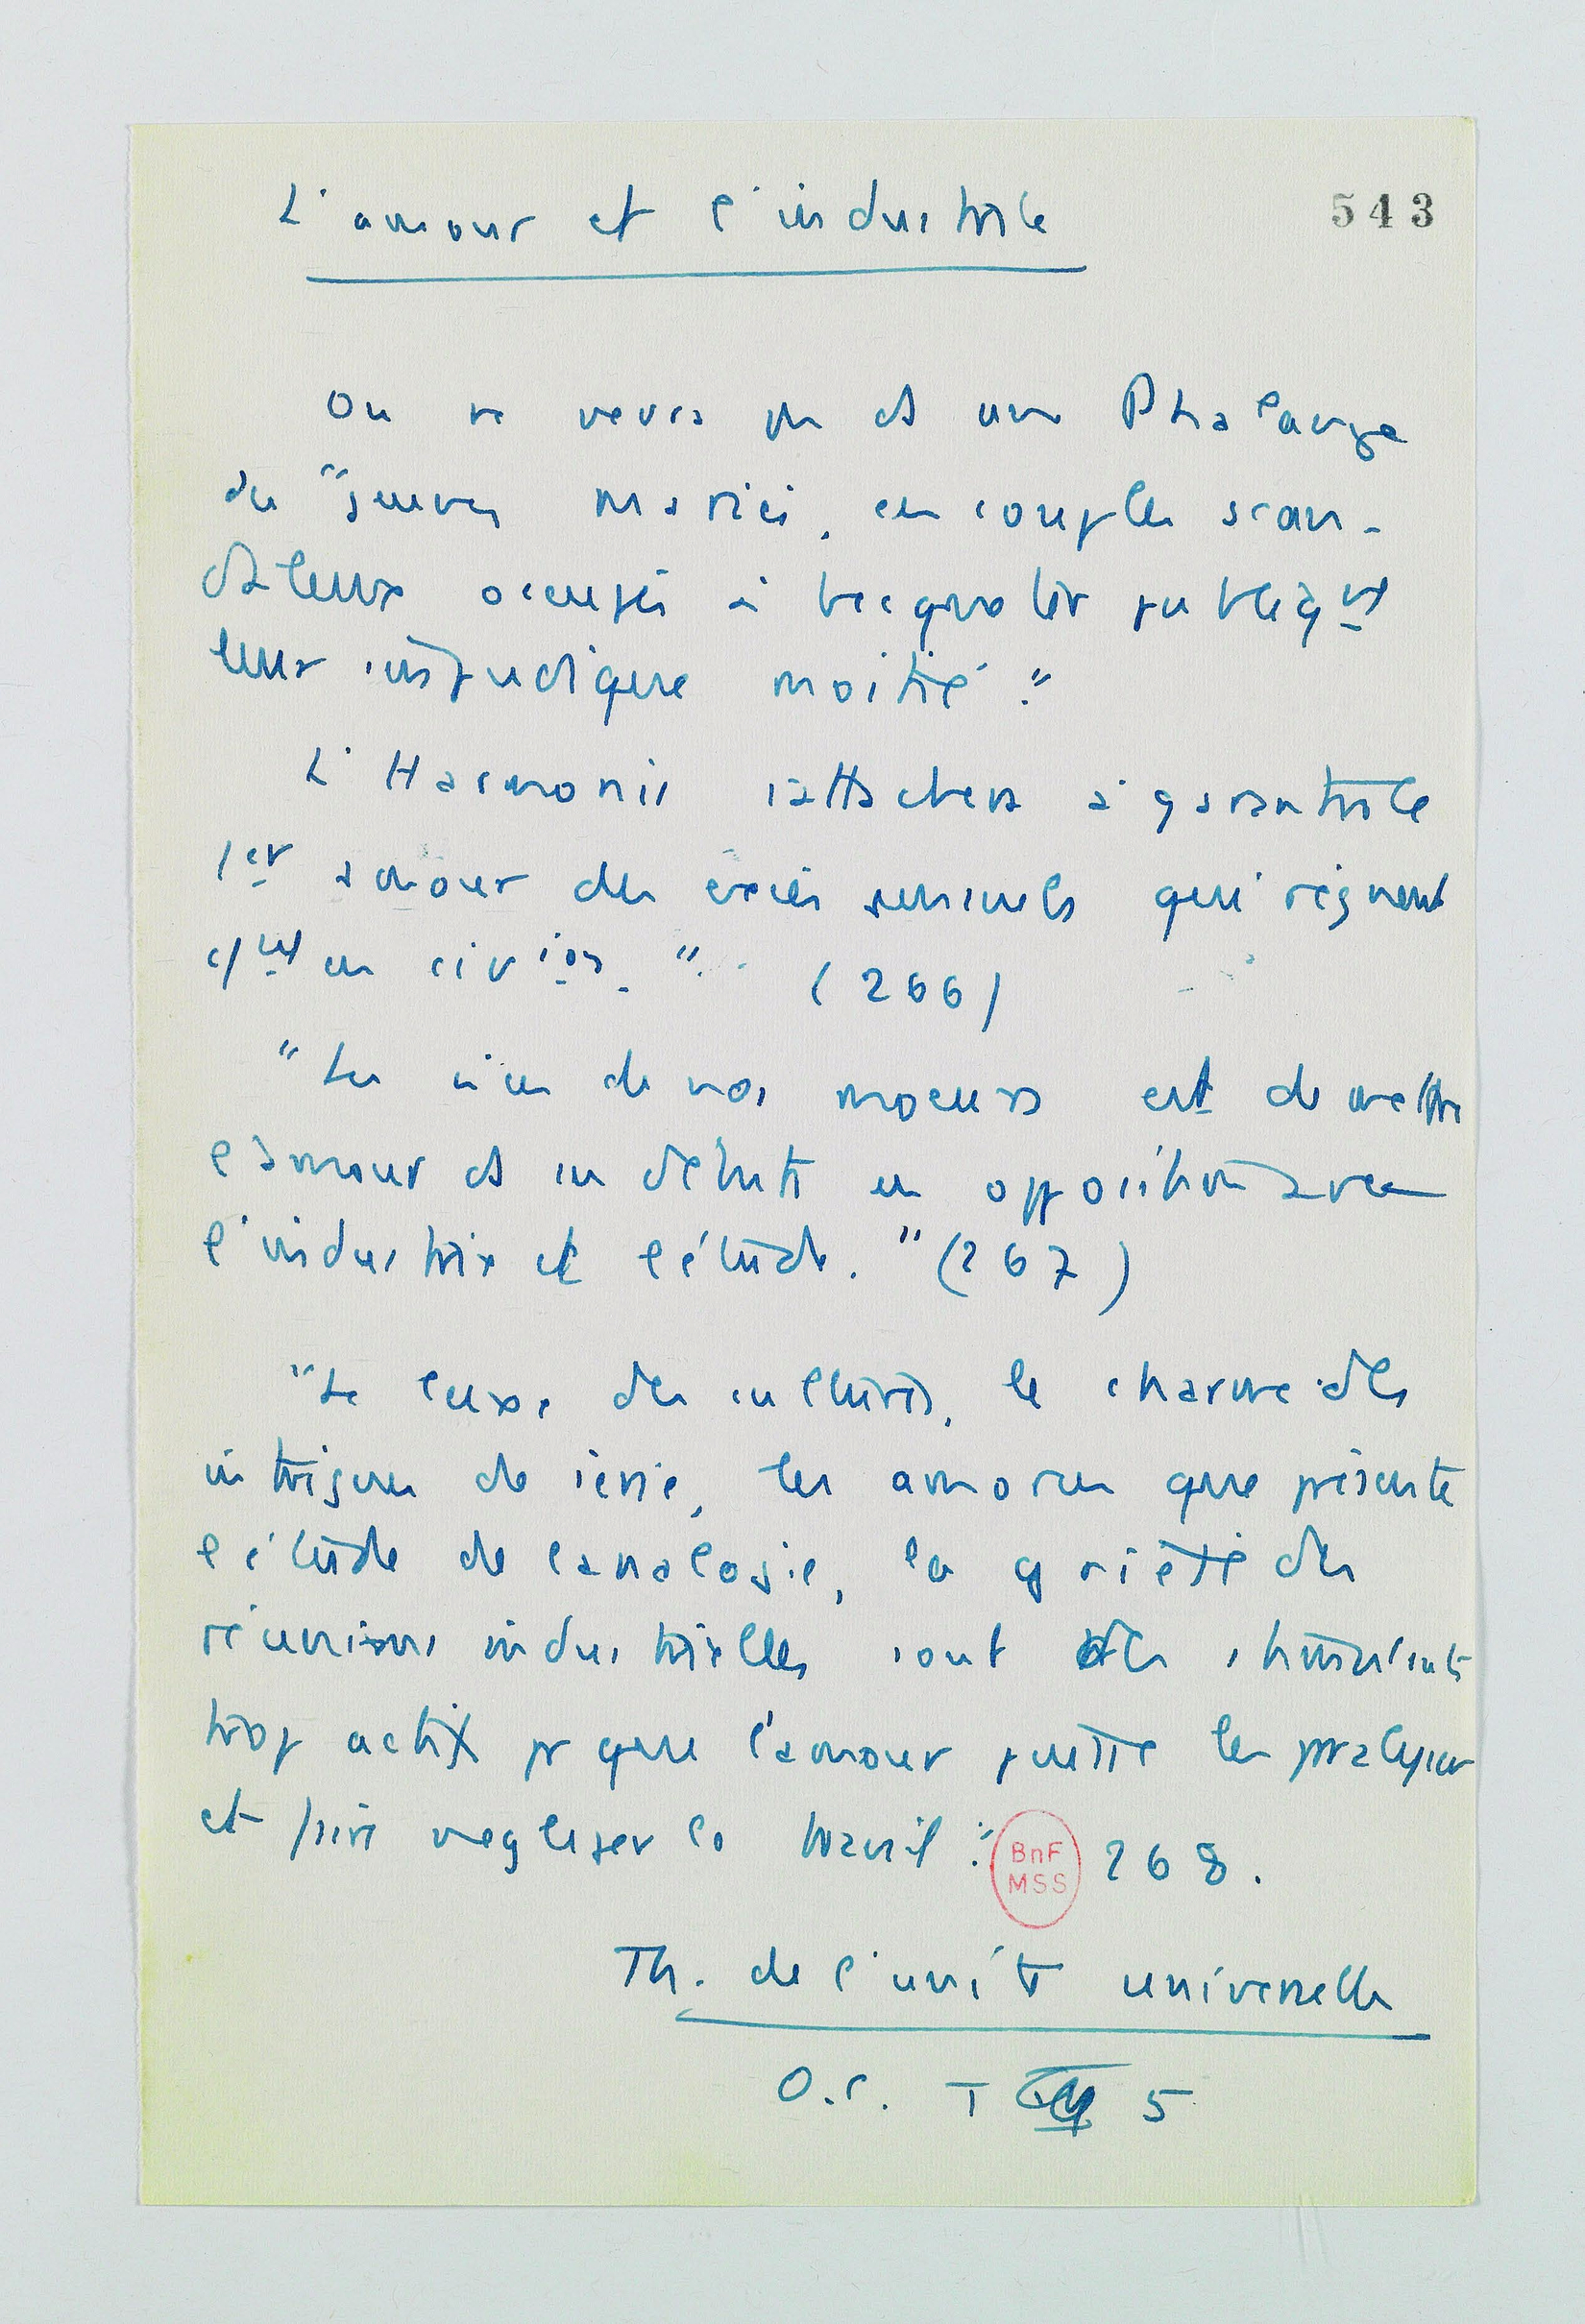 L'amour et l'industrie
543
On ne verra pas ds une Phalange
de "jeunes mariés, ces couples scan-
daleux occupés à becqueter publiqt
leur impudique moitié."
L'Harmonie s'attachera à garantir le
1er amour des excès sensuels qui règnent
en civion." (266)
"Le vice de nos moeurs est de mettre
l'amour ds ses débuts en opposition avec
l'industrie et l'étude." (267)
"Le luxe des cultures, le charme des
intrigues de série, les amorces que présente
l'étude de l'analogie, la gaieté des
réunions industrielles sont des stimulants
trop actifs pr que l'amour puisse les paralyser
et faire negliger le travail." 268.
BnF
MSS
Th. de l'unité universelle
O.C. T 5